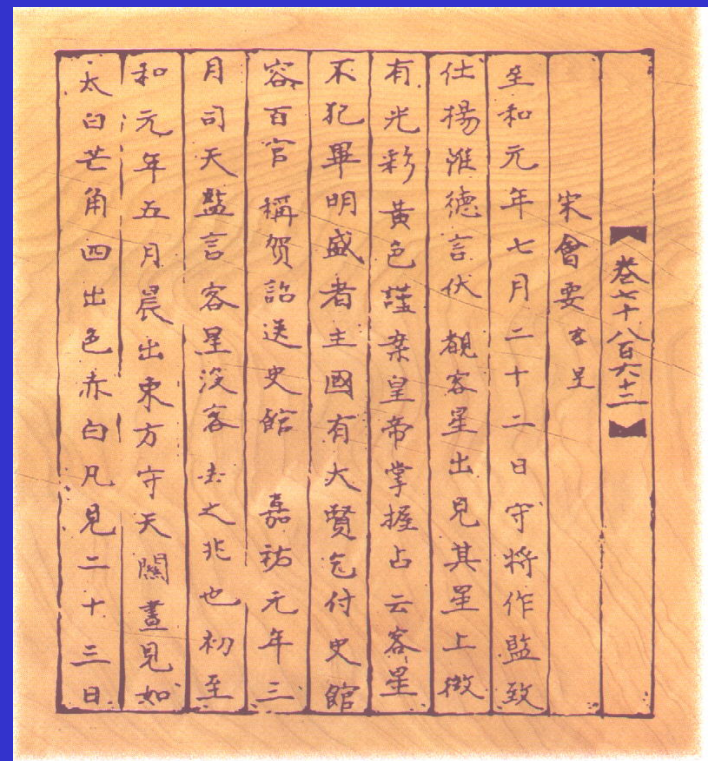 【卷七千八百六十二】
宋會要 客星
至和元年七月二十二日守將作監致
仕楊惟德言伏覩客星出見其星上微
有光彩黃色謹案皇帝掌握占云客星
不犯畢明盛者主國有大賢乞付史館
容百官稱贺詔送史館 嘉祐元年三
月司天監言客星没客去之兆也初至
和元年五月晨出東方守天關晝見如
太白芒角四出色赤白凡見二十三日